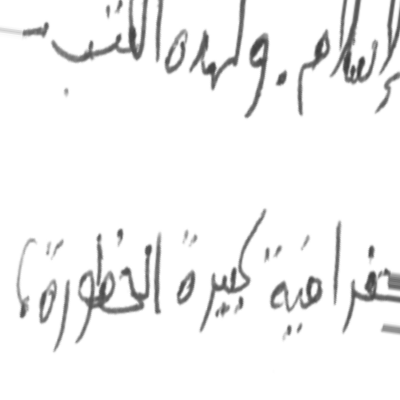 إسلام. ولهذه الكتب
خرافية كبيرة الخطورة؛